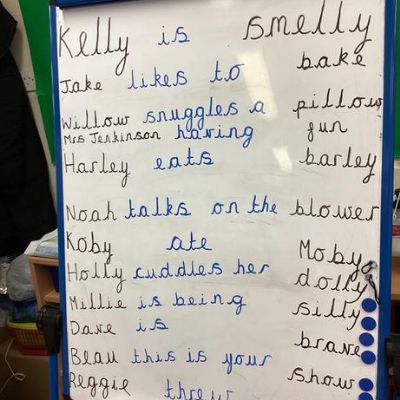 Kelly is smelly
Jake likes to bake
Willow snuggles a pillow
Mrs Jenkinson having fun
Harley eats barley
Noah talks on the blower
Koby ate Moby
Holly cuddles her dolly
Millie is being silly
Dave is brave
Beau this is your show
Reggie threw